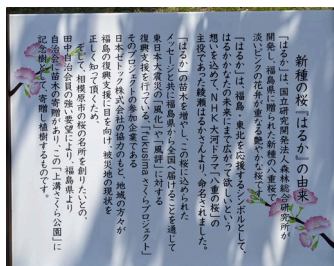 新種の桜『はるか』の由来
『はるか』は、国立研究開発法人森林総合研究所が
開発し、福島県に贈られた新種の八重桜で
淡いピンクの花弁が重なる艶やかな桜です。
『はるか』は、福島、東北を応援するシンボルとして、
はるかかなたの未来にまで広がって欲しいという
想いを込めて、NHK大河ドラマ「八重の桜」の
主役であった綾瀬はるかさんより、命名されました。
『はるか』の苗木を増やし、この桜に込められた
メッセージと共に福島県から全国へ届けることを通じて
東日本大震災の"風化"や"風評"に対する
復興支援を行っている、「Fukushima さくらプロジェクト」
そのプロジェクトの参加企業である
日本セトック株式会社の協力のもと、地域の方々が
福島の復興支援に目を向け、被災地の現状を
正しく知って頂くため、
そして、相模原市の桜の名所を創りたいとの、
田中自治会員の強い要望により、福島県より
自治会に苗木の寄贈があり、この「上溝さくら公園」に
記念樹として、寄贈し植樹するものです。